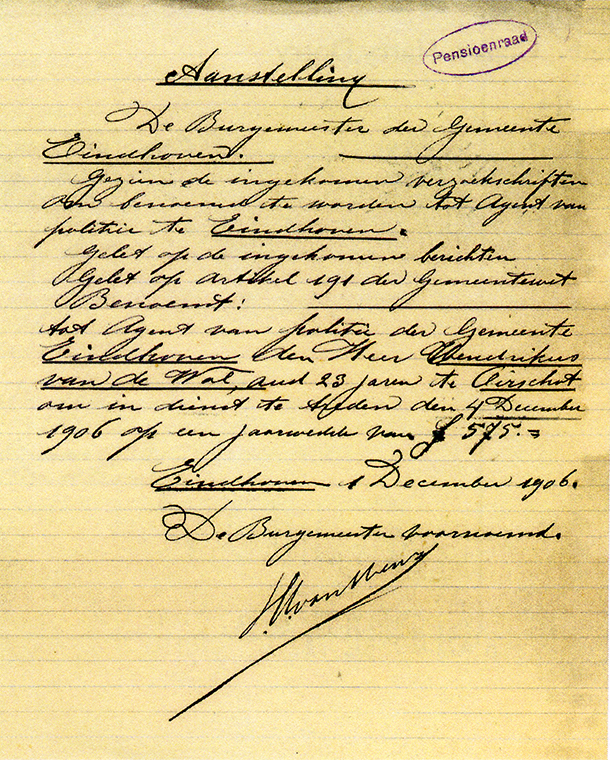 Pensioenraad
Aanstelling
De Burgemeester der Gemeente
Eindhoven.
Gezien de ingekomen verzoekschriften
om benoemd te worden tot Agent van
politie te Eindhoven.
Gelet op de ingekomen berichten
Gelet op artikel 191 der Gemeentewet
Benoemt:
tot Agent van politie der Gemeente
Eindhoven den Heer Hendrikus
van de Wal, oud 23 jaren te Oirschot
om in dienst te treden den 4 December
1906 op een jaarwedde van f 575.=
Eindhoven 1 December 1906.
De Burgemeester voornoemd.